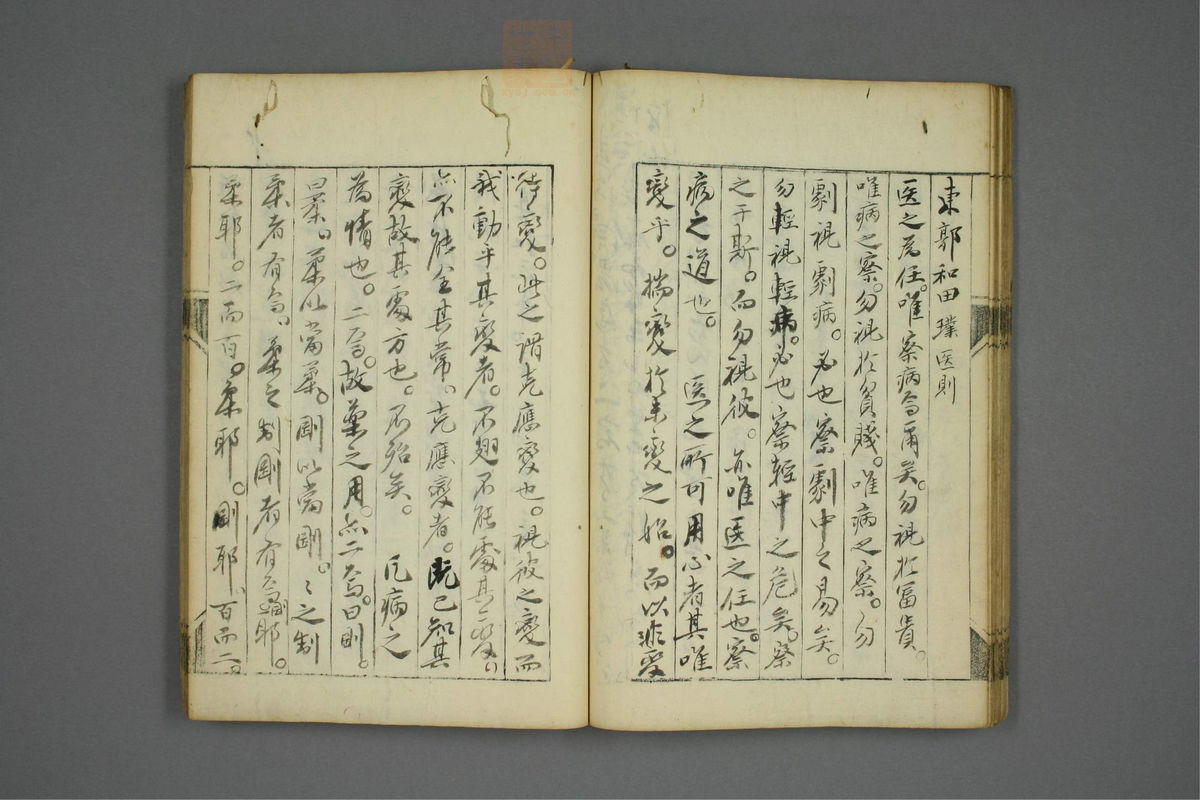 東郭和田璞医則
医之為任。唯察病而爾矣。勿視於富貴。
唯病之察。勿視於貧賤。唯病之察。勿
劇視劇病。必也察劇中之易矣。
勿輕視輕病。必也察輕中之危矣。察
之于斯。而勿視彼。亦唯医之任也。察
病之道也。医之所可用心者其唯
變乎。揣變於未變之始。而以非變
待變。此之謂克應變也。視彼之變而
我動乎其變者。不翅不能處其變。
亦不能全其常、克應變者。既已知其
變故其處方也。不殆矣。凡病之
為情也。二焉。故薬之用。亦二焉。曰剛。
曰柔。柔以當柔。剛以當剛。〻之制
柔者有焉。柔之制剛者有焉。剛耶。
柔耶。二而百。柔耶。剛耶、百而二。